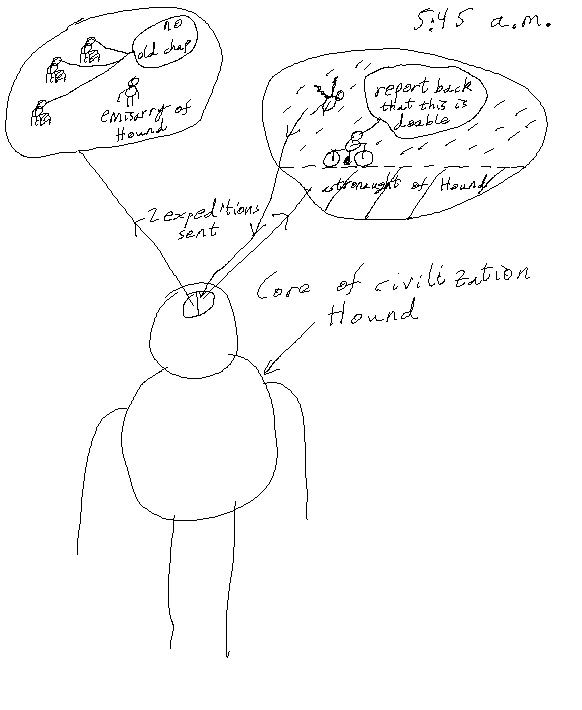 5:45 a.m.
no
old chap
emisarry of
Hound
report back
that this is
doable
astronaught of Hound
2 expeditions
sent
Core of civilization
Hound